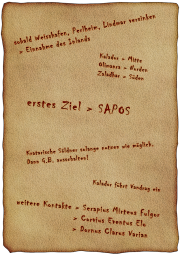 sobald Weisshafen, Perlheim, Lindmar vereinken
> Einnahme des Inlands
Kalador = Mitte
Olimenra = Norden
Zaladhar = Süden
erstes Ziel > SAPOS
Kustarische Söldner solange nutzen wie möglich.
Dann G.B. ausschalten!
Kalador führt Vandrag ein
weitere Kontakte > Serapius Mirteus Fulgor
> Cornius Eventus Elu
> Darnus Clarus Varian